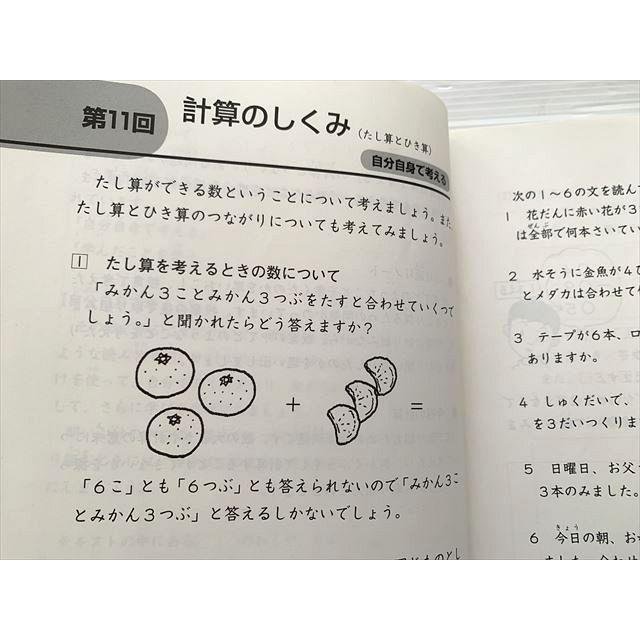 第11回
計算のしくみ
(たし算とひき算)
自分自身で考える
たし算ができる数ということについて考えましょう。また、
たし算とひき算のつながりについても考えてみましょう。
1 たし算を考えるときの数について
「みかん3ことみかん3つぶをたすと合わせていくつで
しょう。」と聞かれたらどう答えますか?
+ =
「6こ」とも「6つぶ」とも答えられないので「みかん3こ
とみかん3つぶ」と答えるしかないでしょう。
次の1〜6の文を読んで
1 花だんに赤い花が3
は全部で何本さいてい
ぜんぶ
2 水そうに金魚が4ひ
とメダカは合わせて
3 テープが6本、
ありますか。
4 しゅくだいで、
を3だいつくりま
5 日曜日、お父
3本のみました。
6 今日の朝、お
きょう